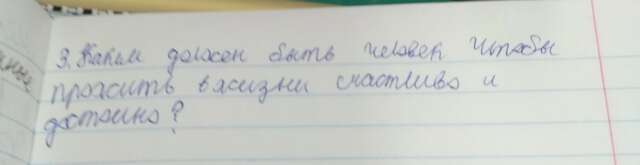 3. Каким должен быть человек чтобы
прожить в жизни счастливо и
достойно?